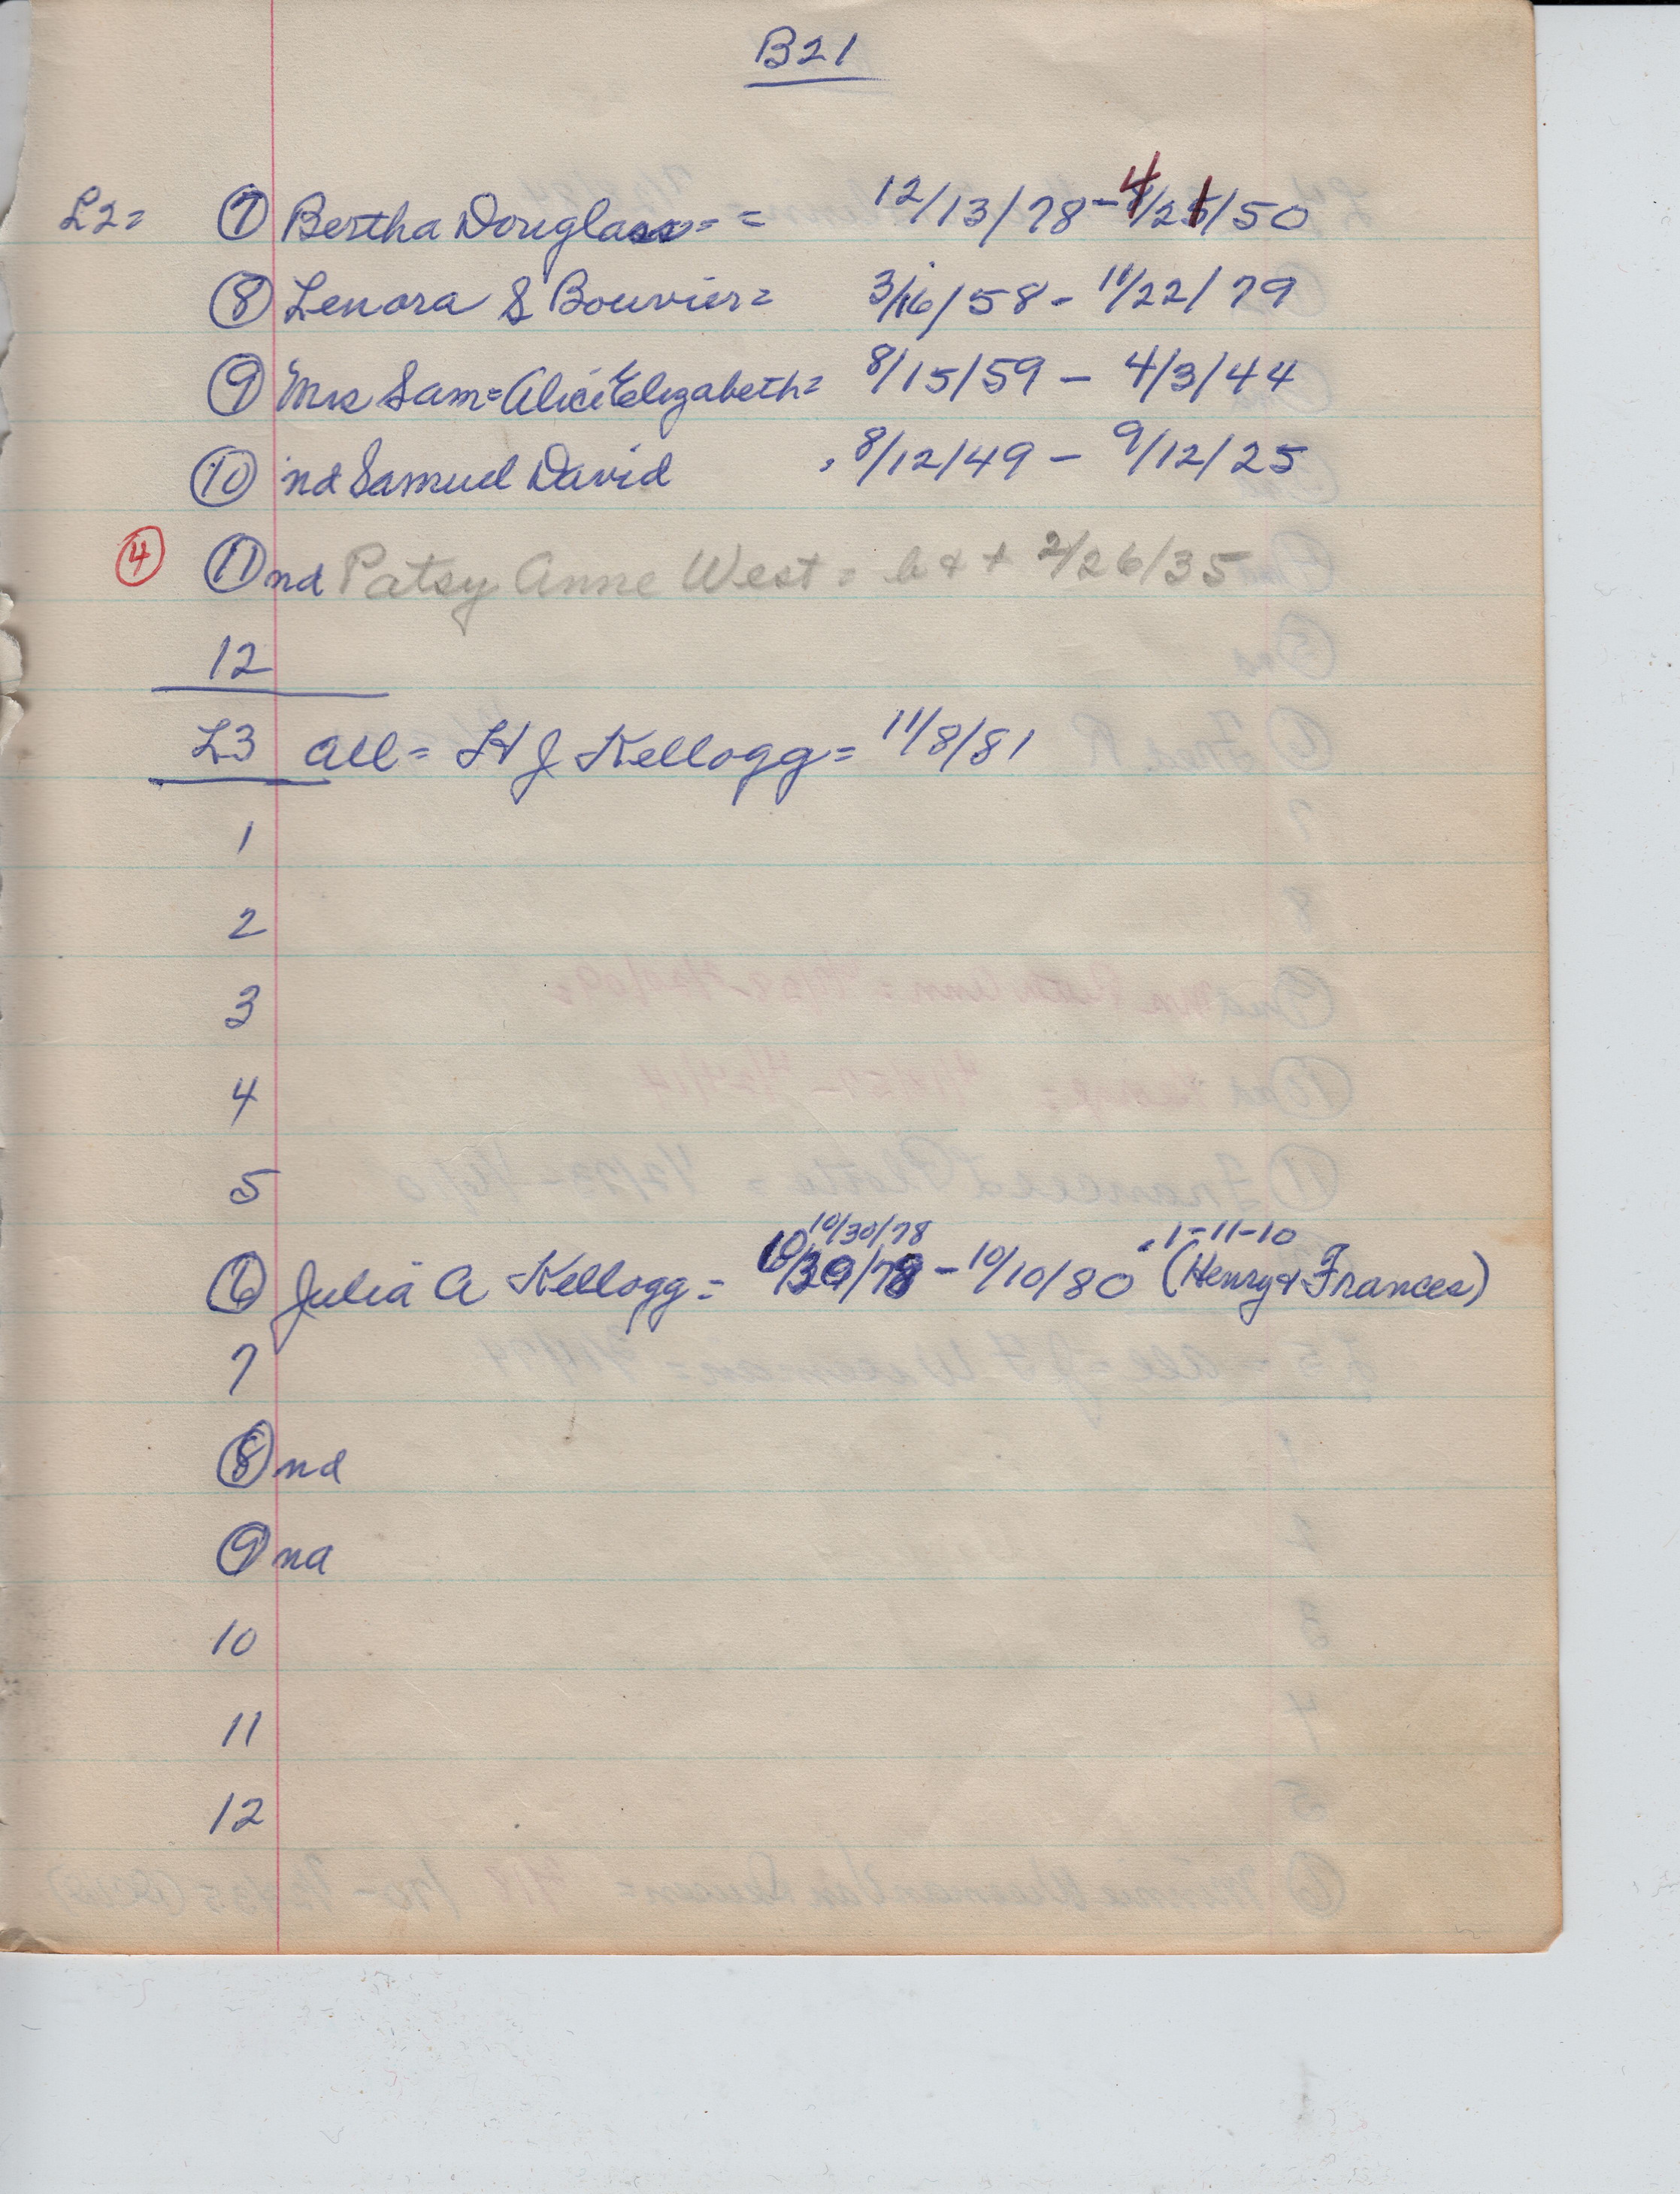 B21
L2= 7 Bertha Douglass= = 12/13/78-4/21/50
8 Lenora S Bouvier= 3/16/58- 11/22/79
9 Mrs Sam=Alice Elizabeth= 8/15/59 - 4/3/44
10 nd Samuel David 8/12/49 - 9/12/25
4 11 nd Patsy Anne West= b & + 2/26/35
12
L3 all= H J Kellogg= 11/8/81
1
2
3
4
5
10/30/78 1-11-10
6 Julia A Kellogg= 10/30/78-10/10/80 (Henry & Frances)
7
8 nd
9 nd
10
11
12